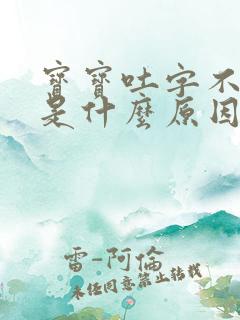 寶寶吐字不
是什麼原因
雷-阿倫
未經同意禁止轉載